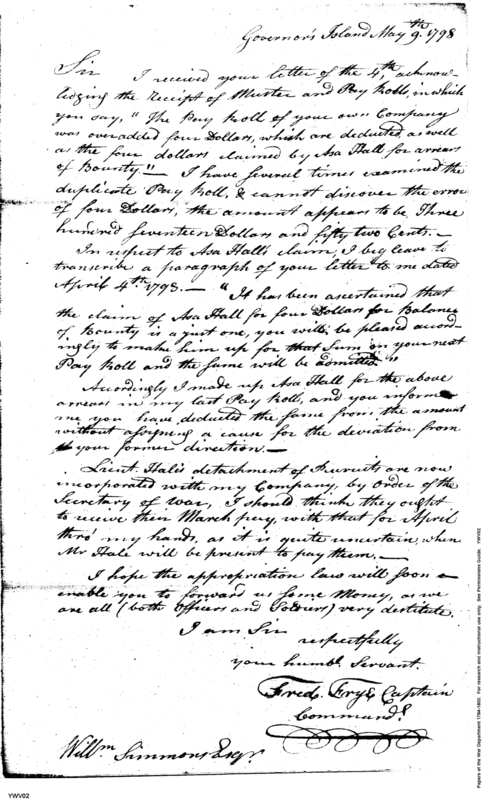 Governor's Island May 9th. 1798
Sir I received your letter of the 4th, acknow-
ledging the receipt of Muster and Pay Roll, in which
you say, "The Pay Roll of your own Company
was overadded four Dollars, which are deducted as well
as the four dollars claimed by Asa Hall for arrears
of Bounty" - I have several times examined the
duplicate Pay Roll, & cannot discover the error
of four Dollars, the amount appears to be Three
hundred Seventeen Dollars and fifty two Cents. -
In respect to Asa Hall's claim, I beg leave to
transcribe a paragraph of your letter to me dated
April 4th 1798. - "It has been ascertained that
the claim of Asa Hall for four Dollars for Balance
of Bounty is a just one, you will be pleased accord-
ingly to make him up for that Sum on your next
Pay Roll and the same will be admitted."
Accordingly I made up Asa Hall for the above
arrears in my last Pay Roll, and you inform
me you have deducted the same from the amount
without assigning a cause for the deviation from
your former direction. -
Lieut. Hale's detachment of Recruits are now
incorporated with my Company, by Order of the
Secretary of War, I should think they ought
to receive their March pay, with that for April
thro' my hands, as it is quite uncertain when
Mr Hale will be present to pay them. -
I hope the appropriation law will soon
enable you to forward us some Money, as we
are all (both Officers and Soldiers) very destitute.
I am Sir
respectfully
your humbl. Servant.
Fred. Frye Captain
Command.g
Willm Simmons Esqr.
YWV02
Papers of the War Department 1784-1800. For research and instructional use only. See Permissions Guide. YWV02